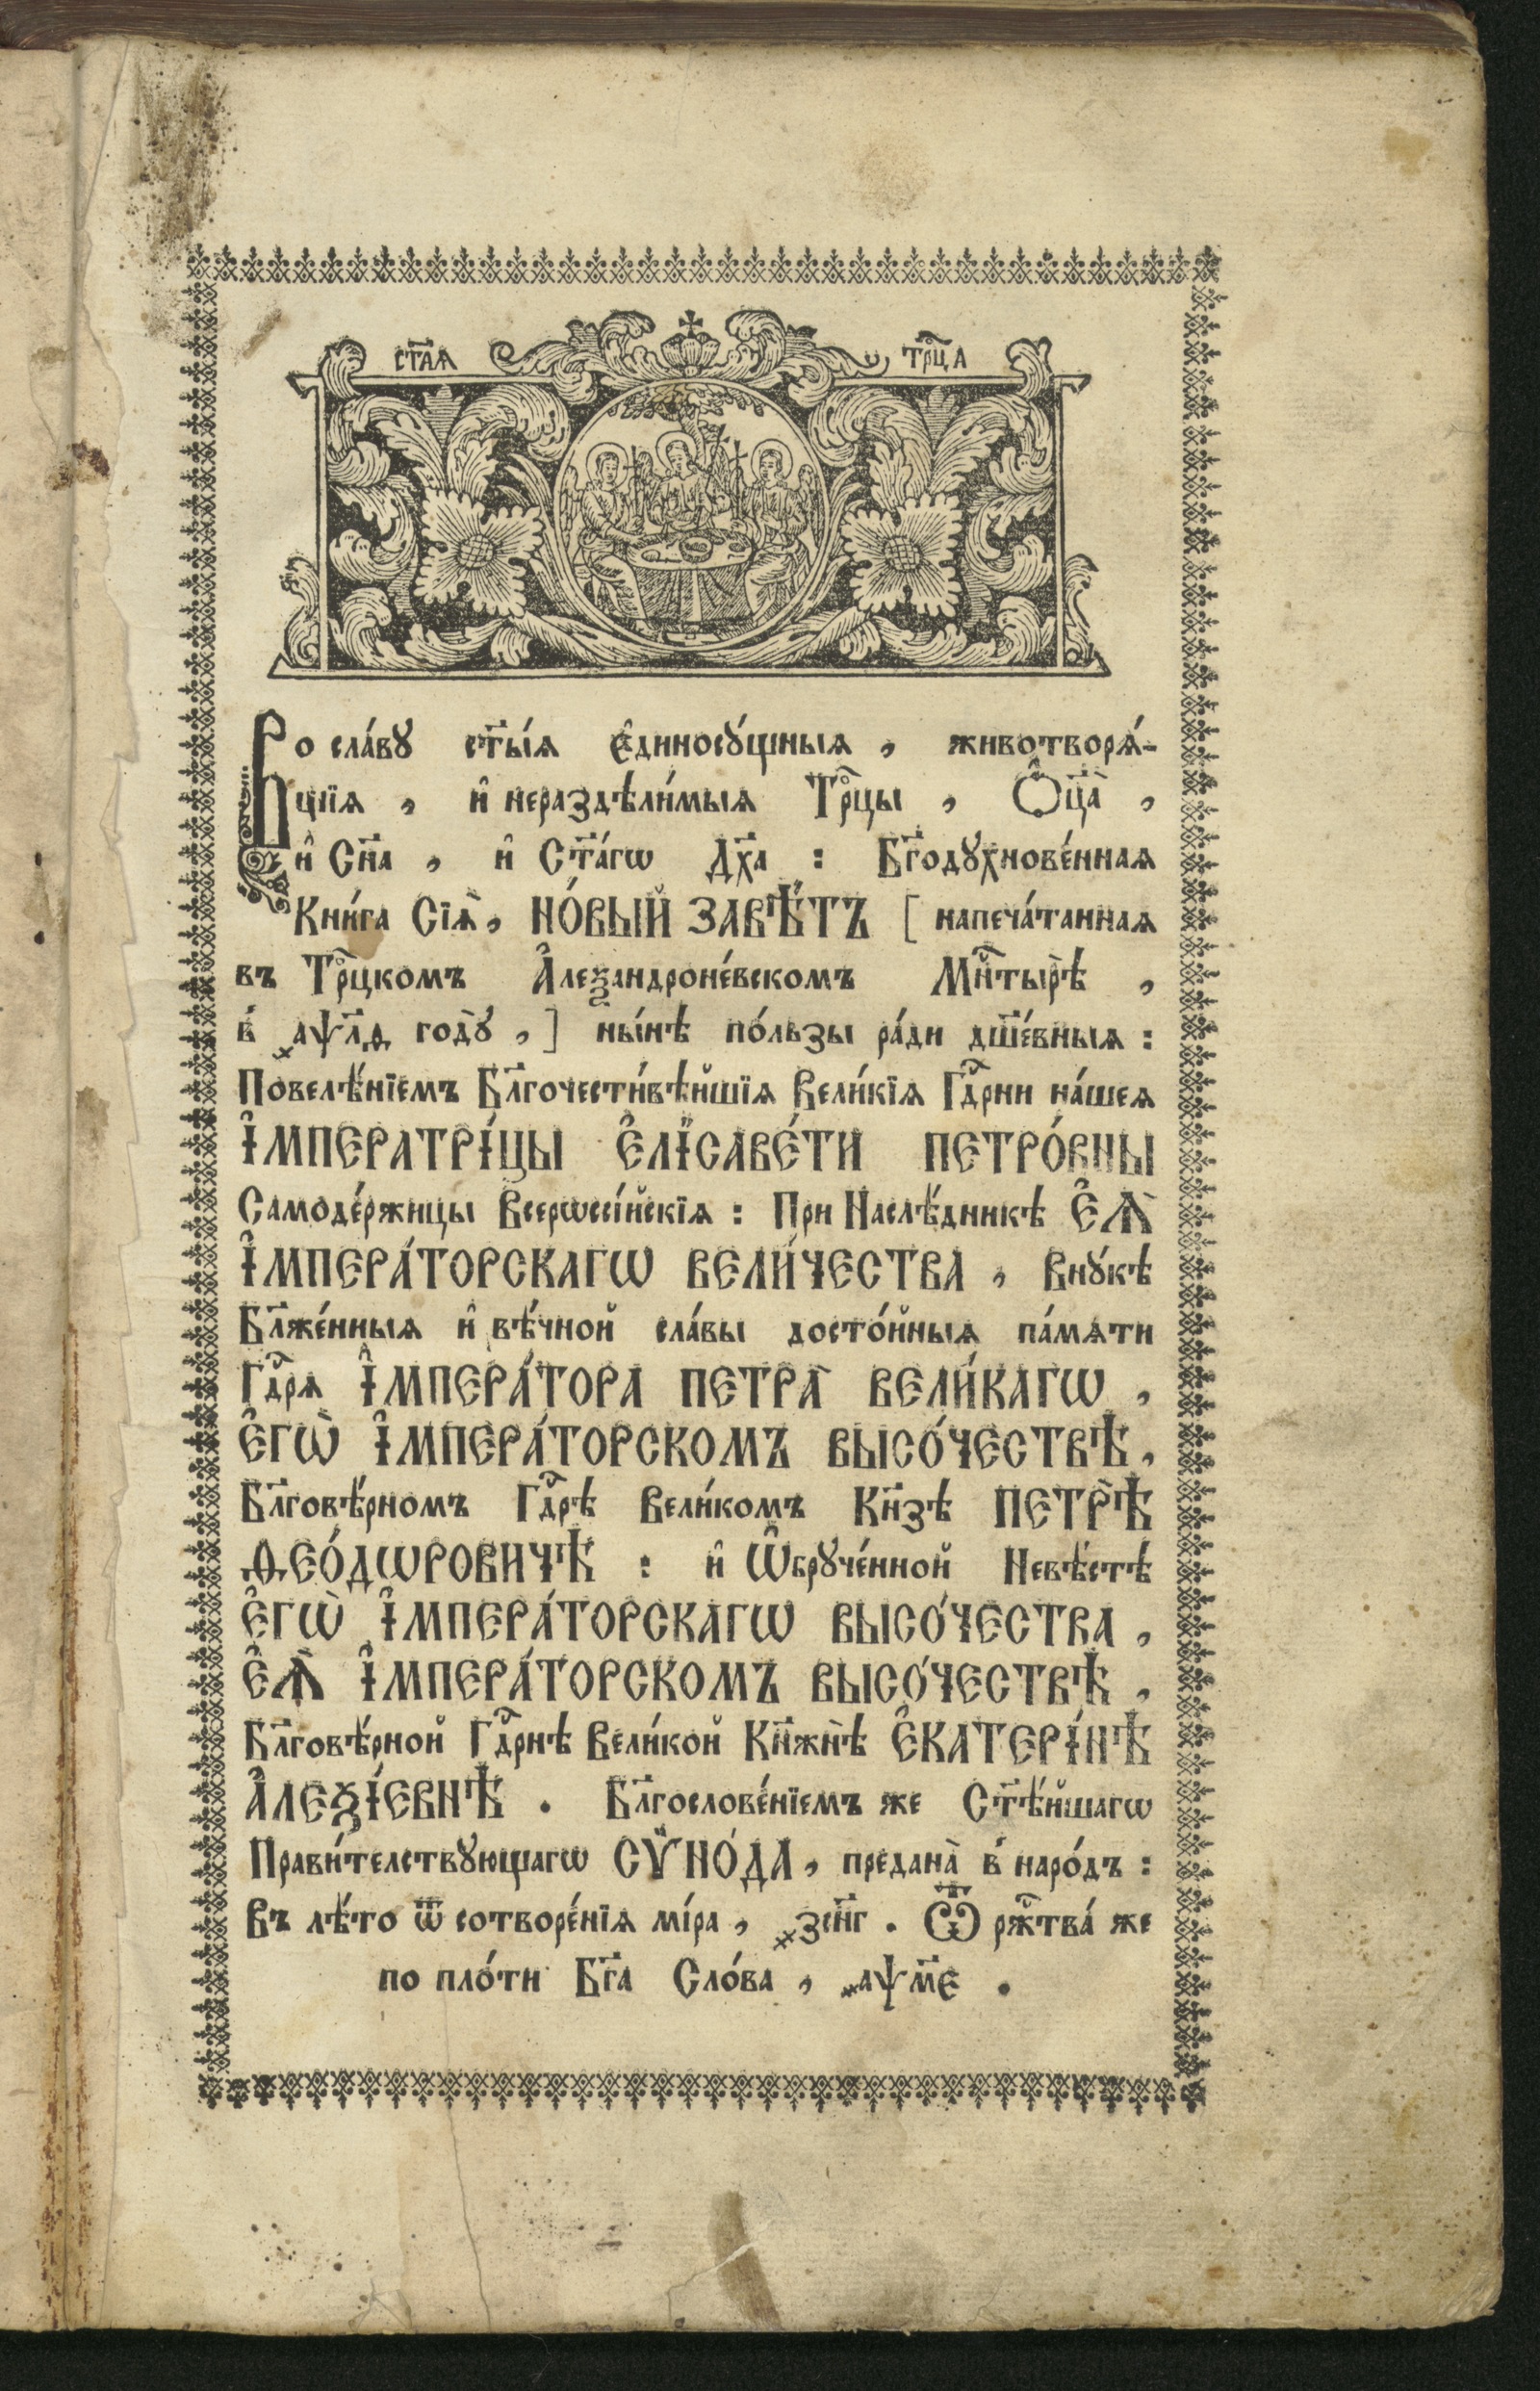 ст҃ая трⷪ҇ца
Во сла́вꙋ ст҃ы́ѧ є҆диносꙋ́щныѧ , животворѧ́-
щїѧ , и҆ нераздѣли́мыѧ Трⷪ҇цы , Ѻ҆ц҃а̀ ,
и҆ Сн҃а , и҆ Ст҃а́гѡ Дх҃а : Бг҃одꙋхнове́ннаѧ
Кни́га Сїѧ̀, НО́ВЫЙ ЗАВѢ́ТЪ [ напеча́таннаѧ
въ Трⷪ҇цкомъ А҆леѯандроне́вскомъ Мн҇тырѐѣ ,
в̾ ҂аѱл҃ѳ годꙋ̀ ,] ны́нѣ по́льзы ра́ди дш҃е́вныѧ :
Повелѣ́нїемъ Бл҃гочести́вѣйшїѧ Вели́кїѧ Гдⷭ҇рни на́шеѧ
І҆МПЕРАТРІ́ЦЫ Є҆ЛІСАВЕ́ТИ ПЕТРО́ВНЫ
Самоде́ржицы Всерѡссі́йскїѧ : При Наслѣ́дникѣ Є҆Ѧ̀
І҆МПЕРА́ТОРСКАГѠ ВЕЛИ́ЧЕСТВА , Внꙋ́кѣ
Бл҃же́нныѧ и҆ вѣ́чной сла́вы досто́йныѧ па́мѧти
Гдⷭ҇рѧ І҆МПЕРА́ТОРА ПЕТРА̀ ВЕЛИ́КАГѠ ,
Є҆ГѠ̀ І҆МПЕРА́ТОРСКОМЪ ВЫСО́ЧЕСТВѢ ,
Бл҃говѣ́рномъ Гдⷭ҇рѣ Вели́комъ Кн҃зѣ ПЕТРѢ̀
ѲЕО́ДѠРОВИЧѢ : и҆ Ѡ҆брꙋче́нной Невѣ́стѣ
Є҆ГѠ̀ І҆МПЕРА́ТОРСКАГѠ ВЫСО́ЧЕСТВА ,
Є҆Ѧ̀ І҆МПЕРА́ТОРСКОМЪ ВЫСО́ЧЕСТВѢ ,
Бл҃говѣ́рной Гдⷭ҇рнѣ Вели́кой Кн҃жнѣ̀ Є҆КАТЕРІ́НѢ
А҆ЛЕѮІ́ЕВНѢ . Бл҃гослове́нїемъ же Ст҃ѣ́йшагѡ
Прави́телствꙋющагѡ СѴНО́ДА , предана̀ в̾ наро́дъ :
Въ лѣ́то ѿ сотворе́нїѧ мі́ра , ҂зсн҃г . Ѿ рж҇тва́ же
по пло́ти Бг҃а Сло́ва , ҂аѱм҃е .